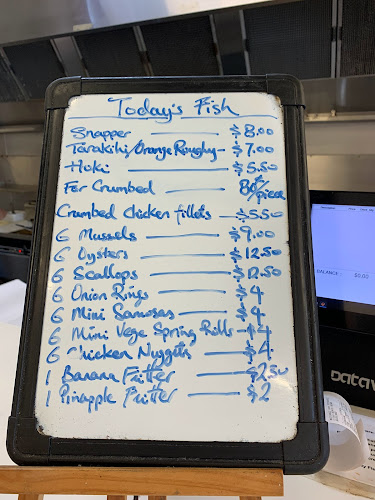 Today's Fish
Snapper — $8.00
Tarakihi/Orange Roughy — $7.00
Hoki — $5.50
For Crumbed — 80¢/piece
Crumbed Chicken fillets — $5.50
6 Mussels — $9.00
6 Oysters — $12.50
6 Scallops — $12.50
6 Onion Rings — $4
6 Mini Samosas — $4
6 Mini Vege Spring Rolls — $4
6 Chicken Nuggets — $4
1 Banana Fritter — $2.50
1 Pineapple Fritter — $2
BALANCE $0.00
DATAV